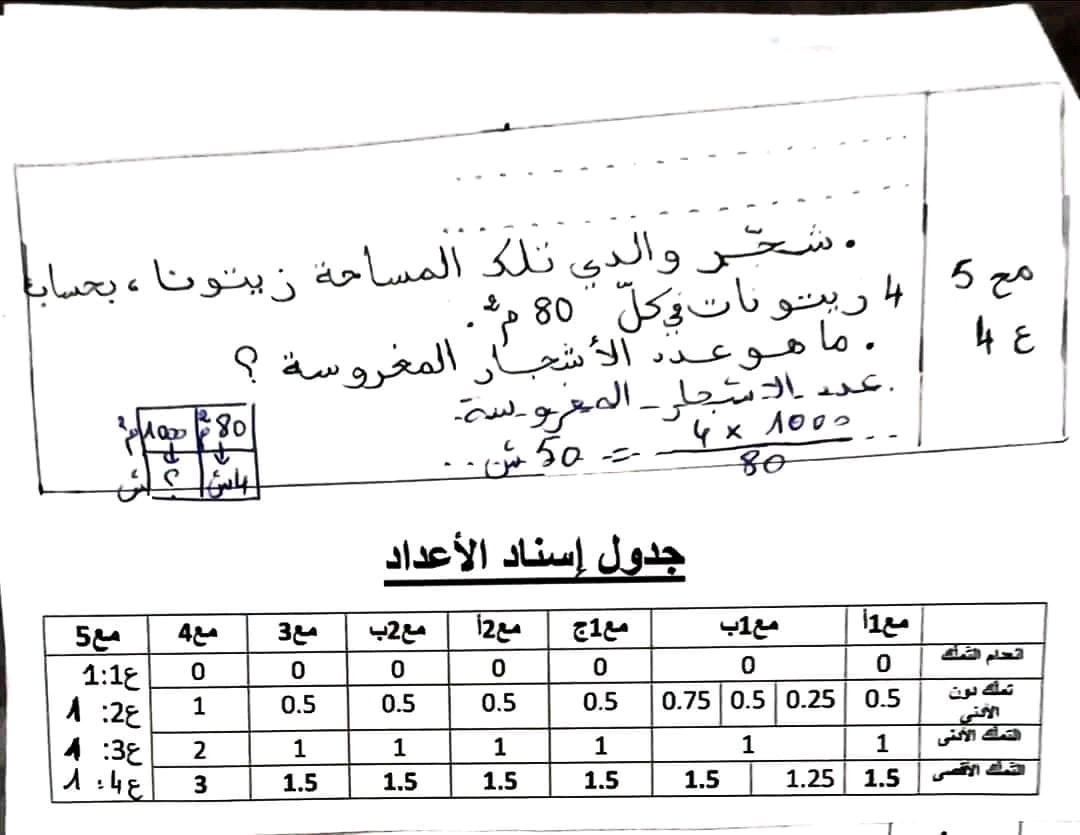 • شجّر والدي تلك المساحة زيتونا، بحساب
4 زيتونات في كلّ 80 م².
• ما هو عدد الأشجار المغروسة ؟
مع 5
ع 4
عدد الاشجار المغروسة
4 × 1000
80
= 50 ش
80 م² 1000 م²
4 ش ؟ ش
جدول إسناد الأعداد
مع1أ مع1ب مع1ج مع2أ مع2ب مع3 مع4 مع5
انعدام التملك 0 0 0 0 0 0 0 ع1:1
تملك دون الأدنى 0.5 0.25 0.5 0.75 0.5 0.5 0.5 0.5 1 ع2: 1
التملك الأدنى 1 1 1 1 1 1 2 ع3: 1
التملك الأقصى 1.5 1.25 1.5 1.5 1.5 1.5 1.5 3 ع4: 1